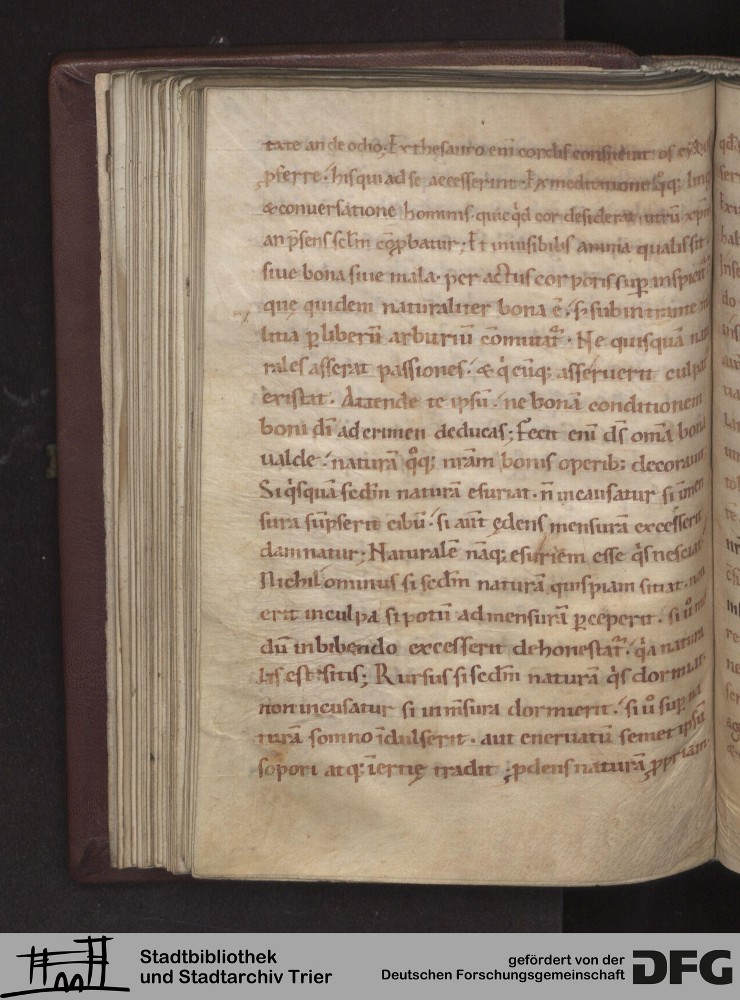 tate an de odio. Ex thesauro eni cordis consueuit os
pferre. his qui ad se accesserint. Ex meditatione qq;
& conuersatione hominis. quie qd cor desiderat utru xpm
an psens sclm cpbatur; Et inuisibilis anima qualis sit.
siue bona siue mala. per actus corporis sup inspicit
que quidem naturaliter bona ē. s; subintrante
litia p liberū arbitriū cōmutat. Ne quisquā
rales asserat passiones. & qcūq; asseruerit culpa
existat. Attende te ipsū. ne bonā conditionem
boni di ad crimen deducas; Fecit enī ds omīa bona
ualde. naturā qq; nrām bonis operib; decorauit
Si qsquā scdm naturā esuriat. n incausatur si
sura sūpserit cibū. si aut ędens mensurā excesserit
damnatur; Naturalē nāq; esuriem esse qs nesciat
Nichilominus si scdm naturā quispiam sitiat.
erit inculpa si potū ad mensurā pceperit. si ū
dū in bibendo excesserit dehonestat. qa natura
lis est sitis; Rursus si scdm naturā qs dormiat.
non incusatur si in msura dormierit. si ū sup na
turā somno īdulserit. aut eneruatū semet ipsū
sopori atq; īertię tradit; pdens naturā ppriam
Stadtbibliothek
und Stadtarchiv Trier
gefördert von der
Deutschen Forschungsgemeinschaft
DFG